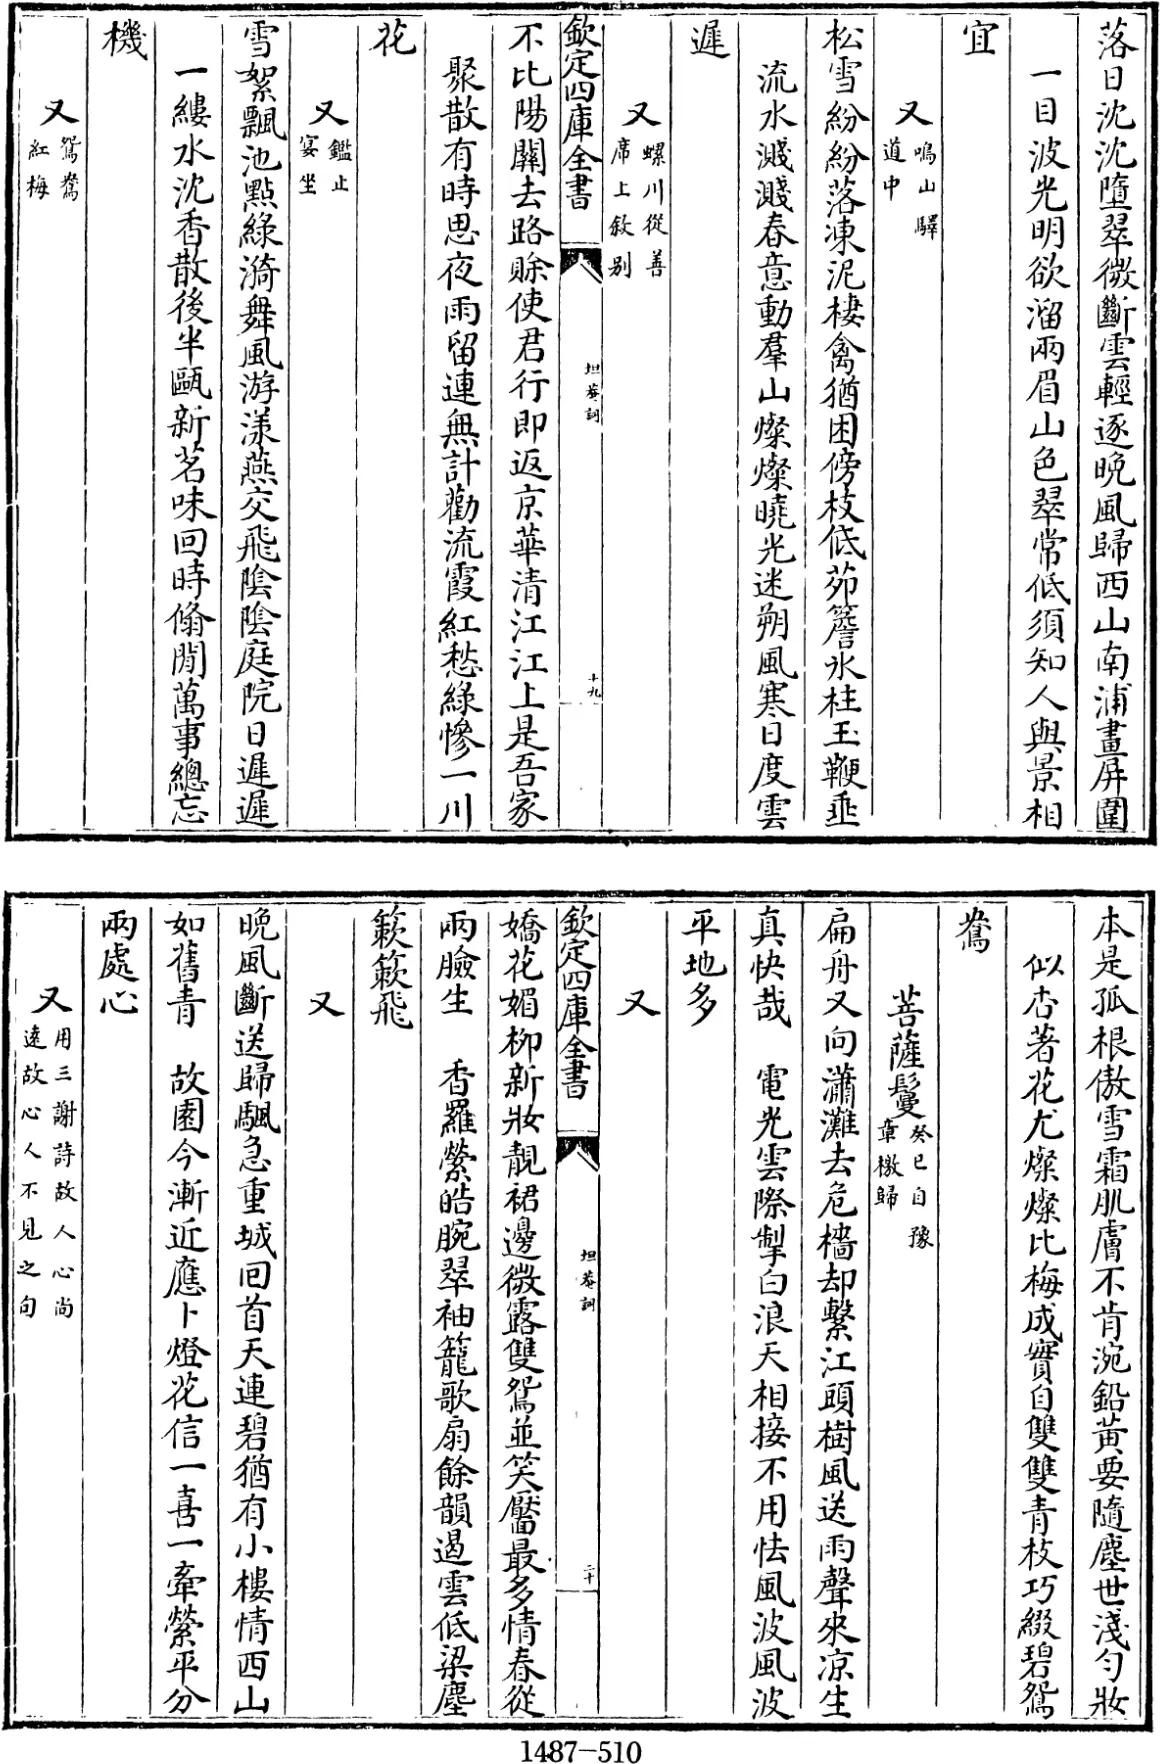 落日沈沈墮翠微斷雲輕逐晩風歸西山南浦畫屏圍
一目波光明欲溜兩眉山色翠常低須知人與景相
宜
又鳴山驛
道中
松雪紛紛落凍泥棲禽猶困傍枝低茆簷氷柱玉鞭垂
流水濺濺春意動羣山燦燦曉光迷朔風寒日度雲
遲
又螺川從善
席上敘别
欽定四庫全書
坦菴詞
十九
不比陽關去路賒使君行即返京華清江江上是吾家
聚散有時思夜雨留連無計勸流霞紅愁綠慘一川
花
又鑑止
宴坐
雪絮飄池點綠漪舞風游漾燕交飛陰陰庭院日遲遲
一縷水沈香散後半甌新茗味回時翛閒萬事總忘
機
又鴛鴦
紅梅
本是孤根傲雪霜肌膚不肯涴鉛黄要隨塵世淺勻妝
似杏著花尤燦燦比梅成實自雙雙青枝巧綴碧鴛
鴦
菩薩鬘癸巳自豫
章檄歸
扁舟又向瀟灘去危檣却繫江頭樹風送雨聲來凉生
真快哉　電光雲際掣白浪天相接不用怯風波風波
平地多
又
欽定四庫全書
坦菴詞
二十
嬌花媚柳新妝靚裙邊微露雙鴛並笑靨最多情春從
兩臉生　香羅縈皓腕翠袖籠歌扇餘韻遏雲低梁塵
簌簌飛
又
晩風斷送歸颿急重城回首天連碧猶有小樓情西山
如舊青　故園今漸近應卜燈花信一喜一牽縈平分
兩處心
又用三謝詩故人心尚
遠故心人不見之句
1487-510